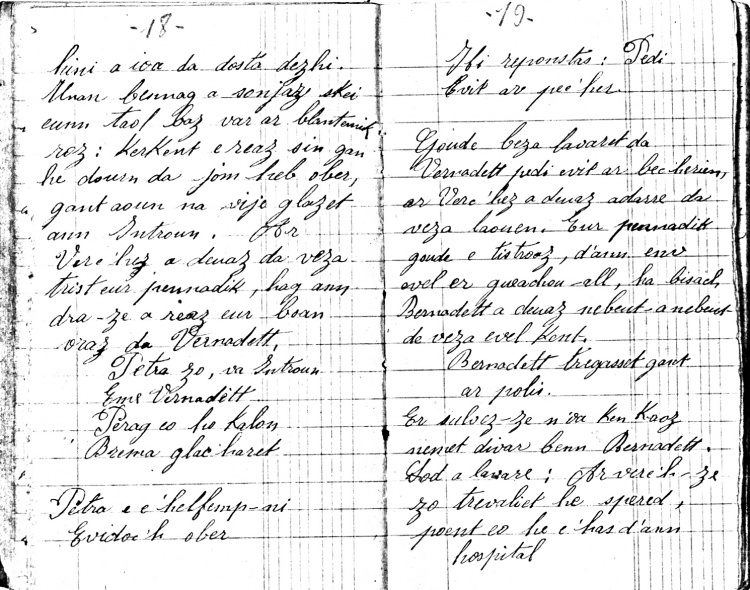 -18-
hini a ioa da dosta dezhi.
Unan bennag a sonjaz skei
eunn taol baz var ar blantennik
roz: Kerkent e reaz sin gan
he dourn da jom heb ober,
gant aoun na vije glazet
ann Introun. Ar
Verc'hez a deuaz da veza
trist eur pennadik, hag ann
dra-ze a reaz eur boan
vraz da Vernadett.
Petra zo, va Introun
Eme Vernadett
Perag eo ho Kalon
Brema glac'haret
Petra e c'helfemp-ni
Evidoc'h ober
-19-
Hi reponstas: Pedi
Evit ar pec'her.
Goude beza lavaret da
Vernadett pedi evit ar bec'herien,
ar Verc'hez a deuaz adarre da
veza laouen. Eur pennadik
goude e tistroaz, d'ann env
evel er gueachou-all, ha bisach
Bernadett a deuaz nebeut-a nebeut
da veza evel Kent.
Bernadett tregasset gant
ar polis.
Er sulvez-ze n'oa Ken Kaoz
nemet divar benn Bernadett.
Lod a lavare: Ar verc'h-ze
zo trevaliet he spered,
poent eo he c'has d'ann
hospital